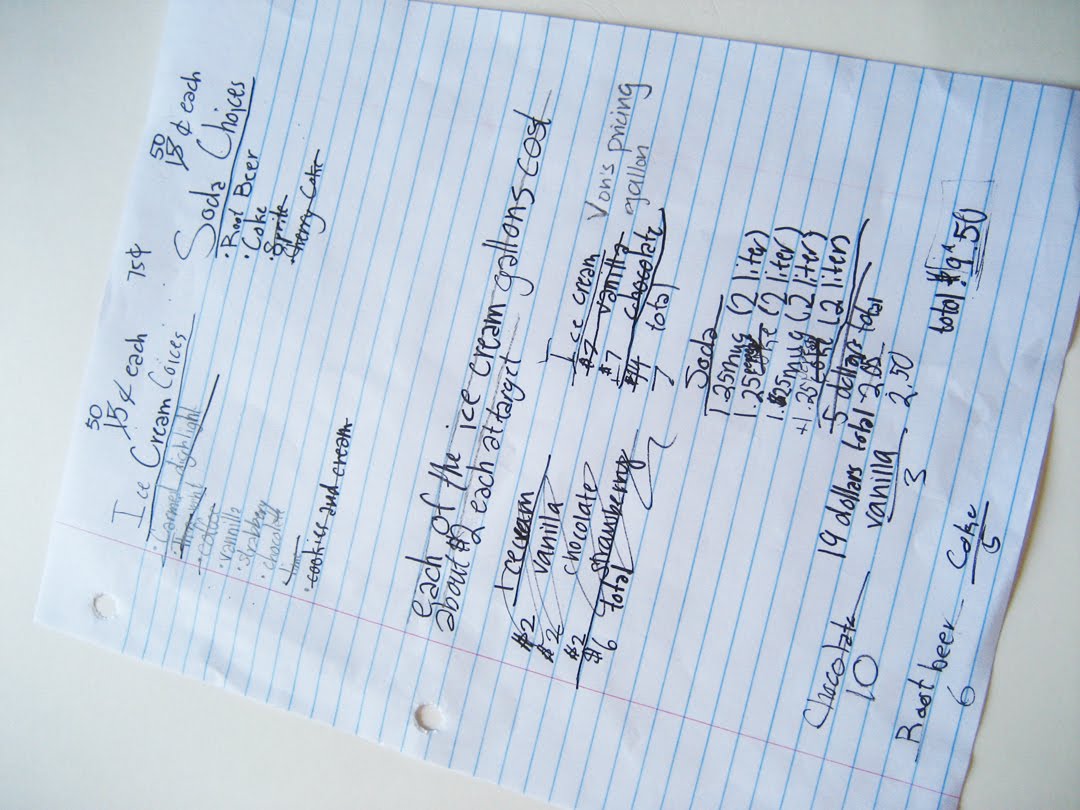 50
15¢ each
75¢
50
15¢ each
Ice Cream Coices
• vanilla
• strabery
• chocolate
• cookies and cream
Soda Choices
• Root Beer
• Coke
• Sprite
• Cherry Coke
Each of the ice cream gallons cost
about $2 each at target
Icecream
$2 vanilla
$2 chocolate
$2 strawberry
$6 total
Ice cream Von's pricing
$7 vanilla gallon
$7 chocolate
$14 total
7
Soda
1.25 mug (2 liter)
1.25 (2 liter)
1.25 mug (2 liter)
+1.25 (2 liter)
5 dollars total
19 dollars total 2.05
Chocolate
10
vanilla
3
2.50
Root beer
6
Coke
5
total: $9.50